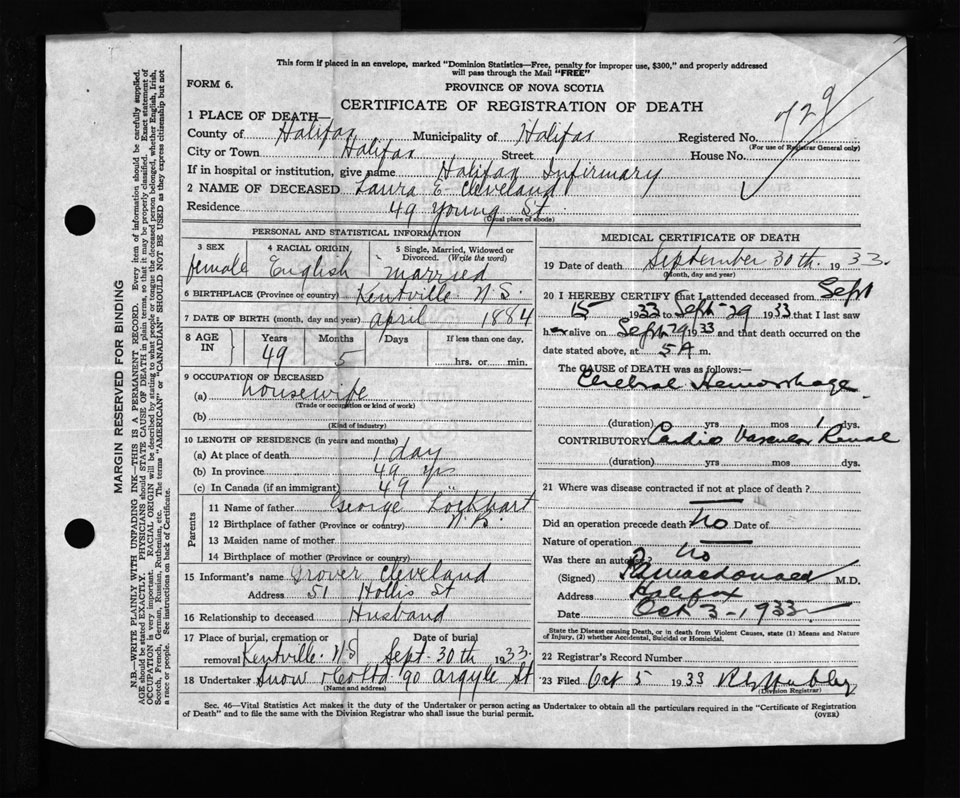 This form if placed in an envelope, marked "Dominion Statistics—Free, penalty for improper use, $300," and properly addressed
will pass through the Mail "FREE"
FORM 6.
PROVINCE OF NOVA SCOTIA
CERTIFICATE OF REGISTRATION OF DEATH
1 PLACE OF DEATH—
County of Halifax Municipality of Halifax Registered No. 729
(For use of Registrar General only)
City or Town Halifax Street House No.
If in hospital or institution, give name Halifax Infirmary
2 NAME OF DECEASED Laura E Cleveland
Residence 49 Young St.
(Usual place of abode)
PERSONAL AND STATISTICAL INFORMATION
3 SEX 4 RACIAL ORIGIN 5 Single, Married, Widowed or Divorced. (Write the word)
female English married
6 BIRTHPLACE (Province or country) Kentville N.S.
7 DATE OF BIRTH (month, day and year) april 1884
8 AGE IN Years Months Days If less than one day,
49 5 hrs. or min.
9 OCCUPATION OF DECEASED
(a) housewife
(Trade or occupation or kind of work)
(b)
(Kind of industry)
10 LENGTH OF RESIDENCE (in years and months)
(a) At place of death 1 day
(b) In province 49 yrs
(c) In Canada (if an immigrant) 49 "
Parents
11 Name of father George Lockhart
12 Birthplace of father (Province or country) N.B.
13 Maiden name of mother
14 Birthplace of mother (Province or country)
15 Informant's name Grover Cleveland
Address 51 Hollis St
16 Relationship to deceased Husband
17 Place of burial, cremation or removal Kentville N.S Date of burial Sept. 30th 1933.
18 Undertaker Snow & Co Ltd 90 Argyle St
(Name and address)
MEDICAL CERTIFICATE OF DEATH
19 Date of death September 30th. 1933.
(Month, day and year)
20 I HEREBY CERTIFY that I attended deceased from Sept
15 1933 to Sept-29 1933 that I last saw
her alive on Sept 29 1933 and that death occurred on the
date stated above, at 5 A m.
The CAUSE OF DEATH was as follows:—
Cerebral Hemorrhage
(duration) yrs mos 1 dys.
CONTRIBUTORY Cardio Vascular Renal
(duration) yrs mos dys.
21 Where was disease contracted if not at place of death ?
Did an operation precede death No Date of
Nature of operation
Was there an autopsy? No
(Signed) Macdonald M.D.
Address Halifax
Date Oct 3-1933
State the Disease causing Death, or in death from Violent Causes, state (1) Means and Nature
of Injury, (2) whether Accidental, Suicidal or Homicidal.
22 Registrar's Record Number
23 Filed Oct 5 1933
(Division Registrar)
Sec. 46—Vital Statistics Act makes it the duty of the Undertaker or person acting as Undertaker to obtain all the particulars required in the "Certificate of Registration
of Death" and to file the same with the Division Registrar who shall issue the burial permit.
(OVER)
MARGIN RESERVED FOR BINDING
N.B.—WRITE PLAINLY WITH UNFADING INK—THIS IS A PERMANENT RECORD. Every item of information should be carefully supplied.
AGE should be stated EXACTLY. PHYSICIANS should STATE CAUSE OF DEATH in plain terms, so that it may be properly classified. Exact statement of
OCCUPATION is very important. RACIAL ORIGIN will be described by stating to what people or tongue the deceased person belonged, whether English, Irish,
Scotch, French, German, Russian, Ruthenian, etc. The terms "AMERICAN" or "CANADIAN" SHOULD NOT BE USED as they express citizenship but not
a race or people. See instructions on back of Certificate.